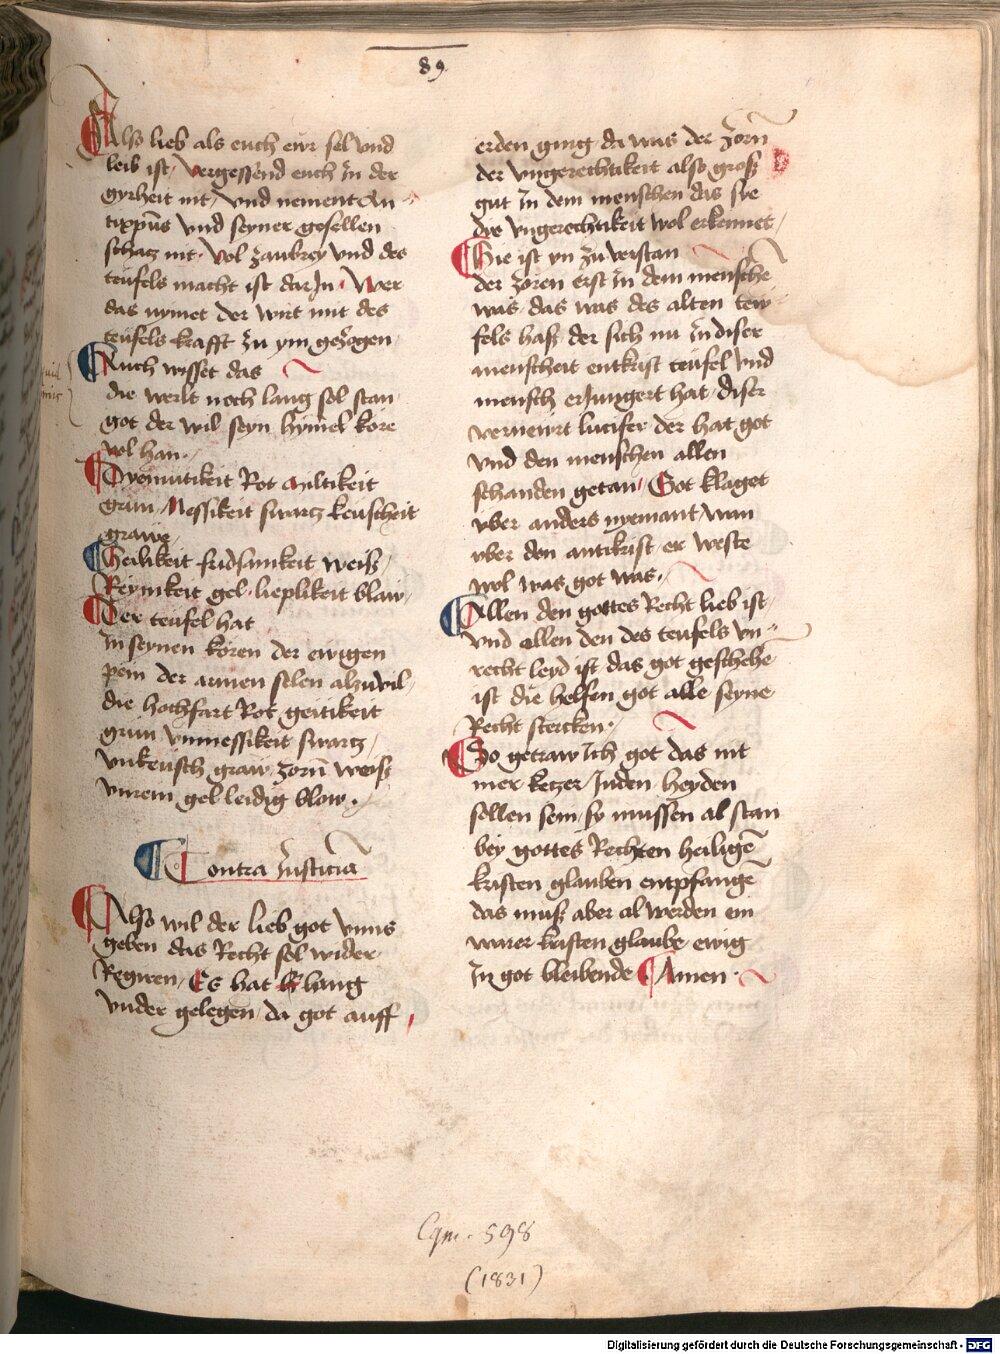 89
Also lieb als euch eur sel vnd
leib ist, vergessend euch zu der
gyrheit nit, vnd nement An
tixpūs vnd seyner gesellen
schacz nit. vol zaubrey vnd des
teufels macht ist dar Jn. Wer
das nymet der wirt mit des
teufels krafft zu ym gezogen
Auch wisset das
die werlt noch lang sol stan
got der wil seyn hymel köre
vol han.
Dyemutikeit Rot miltikeit
grün, Messikeit swartz keuscheit
grawe
Heilikeit fridsamkeit weiß,
Reynikeit gel. lieplikeit blaw,
Der teufel hat
Jn seynen kören der ewigen
pein der armen selen alzu vil,
die hochfart Rot, geitikeit
grün vnmessikeit swartz,
vnkeusch graw, zorn weiß
vnrein gel leidig blow.
Contra Justiciā
Also wil der lieb got vnns
geben das Recht sol wider
Regiren, Es hat lang
vnder gelegen, da got auff
erden ging da was der zorn
der vngerechtikeit also groß
gut Jn dem menschen das sye
die vngerechtikeit wol erkennet,
Hie ist vn zu verstan
der zoren erst Jn dem mensche
was, das was des alten tew
fels haß, der sich nu Jn diser
menscheit entkrist teufel vnd
mensch erJungert hat, diser
vernewrt lucifer der hat got
vnd den menschen allen
schanden getan, Got klaget
vber anders nyemant, wan
vber den antikrist, er weste
wol was got was.
Allen den gottes Recht lieb ist,
vnd allen den des teufels vn
recht leyd ist das got geschehe
ist die helfen got alle seyne
Recht stercken.
So getraw Jch got das nit
mer ketzer Juden heyden
sollen sein, sy mussen al stan
bey gottes Rechten heiligē
kristen glauben entpfangē
das muß aber al werden ein
warer kristen glaube, ewig
Jn got bleibende Amen.
Cgm. 598
(1831)
Digitalisierung gefördert durch die Deutsche Forschungsgemeinschaft - DFG